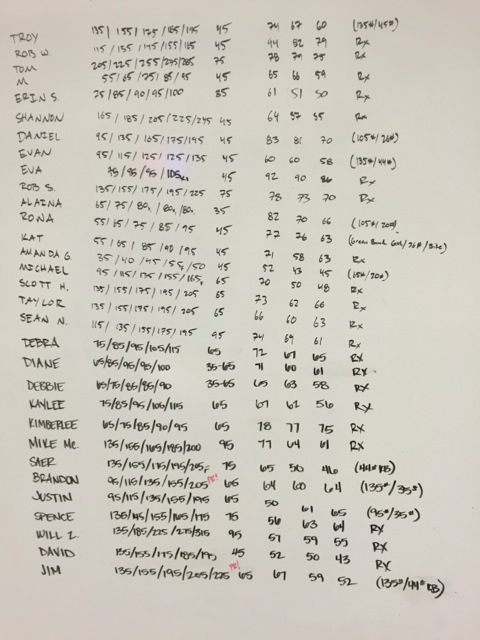 TROY 135/155/175/185/195 45 74 67 60 (135#/45#)
ROB W. 115/135/145/155/165 45 94 82 79 Rx
TOM 205/225/255/275/285 75 78 79 75 Rx
M 55/65/75/85/95 45 65 66 59 Rx
ERIN S. 75/85/90/95/100 35 61 51 50 Rx
SHANNON 165/185/205/225/245 45 64 57 55 Rx
DANIEL 95/135/165/175/195 45 83 81 70 (105#/26#)
EVAN 95/115/125/125/135 45 60 60 58 (135#/44#)
EVA 75/85/95/105 45 92 90 86 Rx
ROB S. 135/155/175/195/225 75 78 73 70 Rx
ALAINA 65/75/80/80/80 35
RONA 55/65/75/85/95 45 82 70 66 (105#/20#)
KAT 55/65/85/90/95 45 77 76 63 (Green Band /26#/Bike)
AMANDA G. 35/40/45/55/50 45 71 58 63 Rx
MICHAEL 95/115/135/155/165 65 52 43 45 (65#/20#)
SCOTT H. 135/155/175/195/205 65 70 50 48 Rx
TAYLOR 135/155/175/195/205 65 73 62 66 Rx
SEAN N. 115/135/155/175/195 95 66 60 63 Rx
DEBRA 75/85/95/105/115 65 74 69 61 Rx
DIANE 65/85/95/95/100 35-65 72 67 65 RX
DEBBIE 65/75/85/85/90 35-65 71 60 61 RX
KAYLEE 75/85/95/105/115 65 65 63 58 RX
KIMBERLEE 65/75/85/90/95 65 67 62 56 RX
MIKE Mc. 135/155/165/185/200 95 78 77 75 RX
SAER 135/155/175/195/205 75 77 64 61 RX
BRANDON 95/115/135/155/205 PR! 65 65 50 46 (44# KB)
JUSTIN 95/115/135/155/195 65 64 60 64 (135#/35#)
SPENCE 135/145/155/165/175 75 50 61 65 (95#/35#)
WILL Z. 135/185/225/275/315 95 56 63 64 RX
DAVID 135/155/175/185/195 45 57 59 55 RX
52 50 43 RX
JIM 135/155/195/205/225 PR! 65 67 59 52 (135#/44# KB)